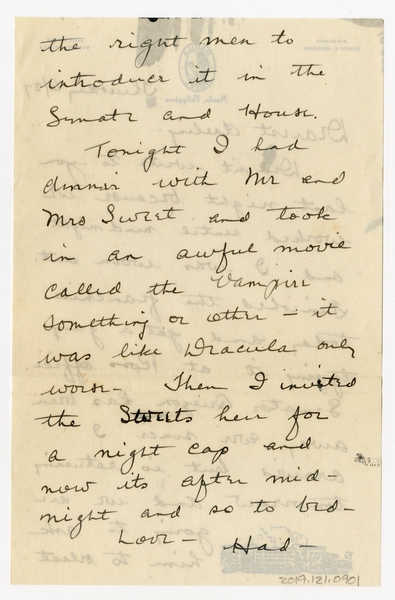 the right men to
introduce it in the
Senate and House.
Tonight I had
dinner with Mr and
Mrs Sweet and took
in an awful movie
called the Vampire
something or other - it
was like Dracula only
worse - Then I invited
the Sweets here for
a night cap and
now its after mid-
night and so to bed -
Love - Had -
2019.121.0901